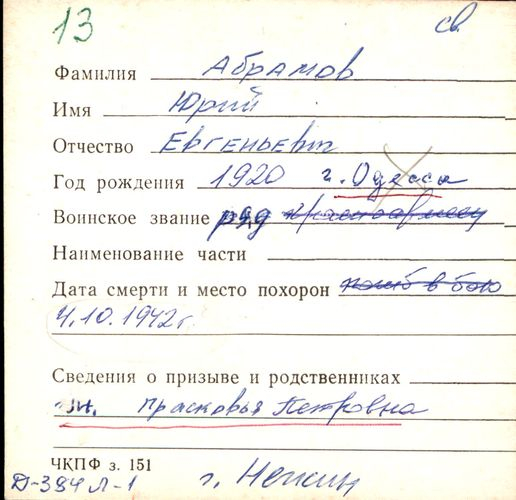 13
св.
Фамилия Абрамов
Имя Юрий
Отчество Евгеньевич
Год рождения 1920 г. Одесса
Воинское звание ряд красноармеец
Наименование части
Дата смерти и место похорон погиб в бою
4.10.1942 г.
Сведения о призыве и родственниках
Прасковья Петровна
ЧКПФ з. 151
Д-384 л-1 г. Нежин